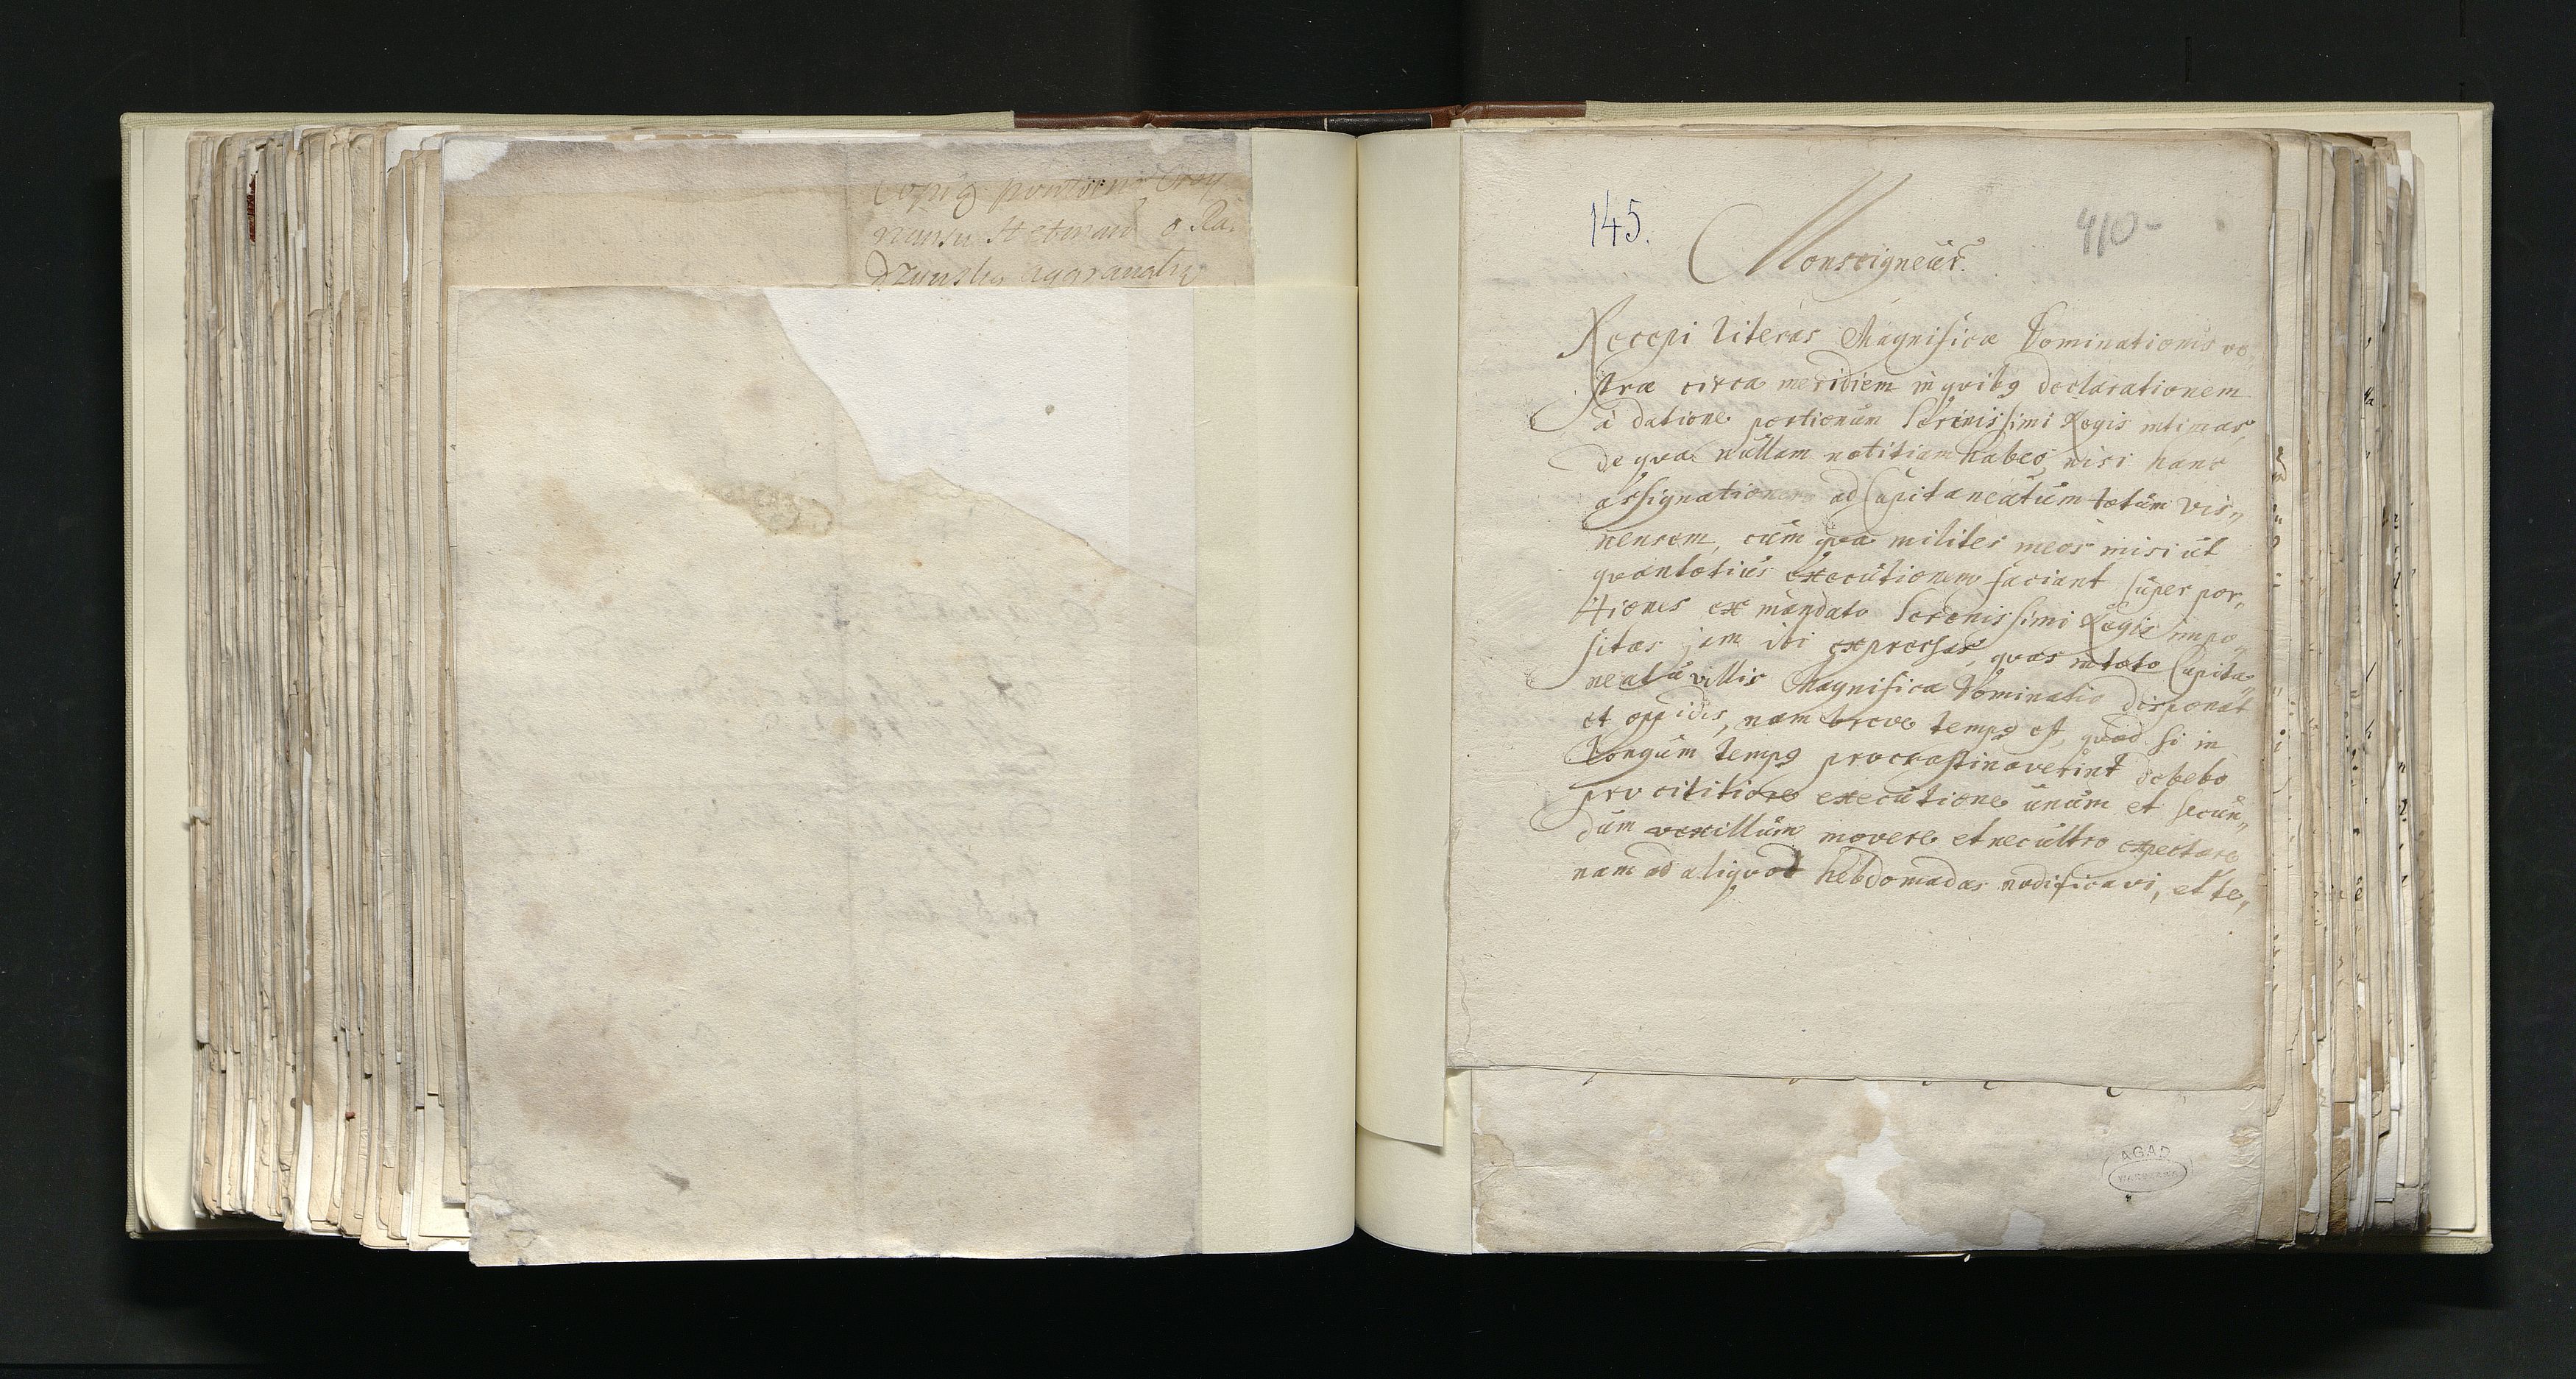 Copia powtorne Ordy
nansu Hetmana o Ra,
145.
410-
Monseigneúr.
Recepi literas Magnificæ Dominationis ve,
stræ circa meridiem in qvibꝯ declarationem
à datione portionúm Serenissimi Regis intimas,
de qva núllam notitiam habeo nisi hanc
assignationem ad Capitaneatúm totúm Vis„
nensem, cúm qva milites meos misi út
qvantotiús execútionem faciant súper por„
tiones ex mandato Serenissimi Regis impo„
sitas jam ibi expressas, qvas in toto Capita„
neatú villis Magnifica Dominatio disponat
et oppidis, nam breve tempꝯ est, qvod si in
longúm tempꝯ procrastinaverint debebo
pro citiore execútione únúm et secún„
dúm vexillúm movere et nec últro expectare
nam ad aliqvod hebdomadas nodificavi, et te„
A.G.A.D.
WARSZAWA